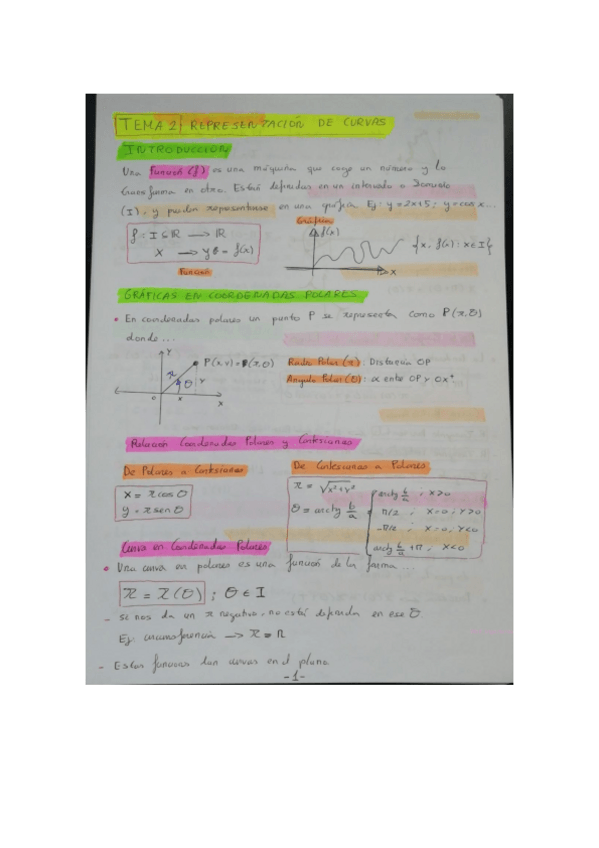 TEMA 2| REPRESENTACIÓN DE CURVAS
INTRODUCCION
Una Función (f) es una máquina que coge un número y lo
transforma en otro. Están definidas en un intervalo o Dominio
(I), y pueden representarse en una gráfica. Ej: y = 2x+5; y = cos x...
Gráfica
f: I ⊆ ℝ → ℝ
x → y = f(x)
f(x)
x
{x, f(x) : x ∈ I}
Función
GRÁFICAS EN COORDENADAS POLARES
• En coordenadas polares un punto P se representa como P(r, θ)
donde ...
y
P(x,y) = P(r,θ)
r
θ
y
o
x
x
Radio Polar (r): Distancia OP
Angulo Polar (θ): α entre OP y OX⁺
Relación Coordenadas Polares y Cartesianas
De Polares a Cartesianas
x = r cos θ
y = r sen θ
De Cartesianas a Polares
r = √x²+y²
θ = arctg b/a
arctg b/a ; x>0
π/2 ; x=0; y>0
-π/2 ; x=0, y<0
arctg b/a + π ; x<0
Curva en Coordenadas Polares
• Una curva en polares es una función de la forma ...
r = r(θ) ; θ ∈ I
- si nos da un r negativo, no está definida en ese θ
Ej: circunsferencia → r = R
- Estas funciones dan curvas en el plano.
-1-